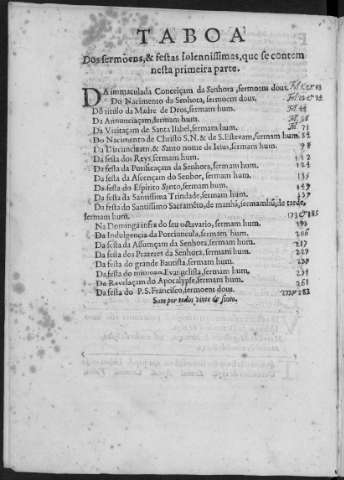 TABOA
Dos sermoens, & festas solennissimas, que se contem
nesta primeira parte.
DA immaculada Conceiçam da Senhora, sermoens dous.
Do Nacimento da Senhora, sermoens dous.
Do titilo da Madre de Deos, sermam hum. 44
Da Annunciaçam, sermam hum.
Da Visitaçam de Santa Isabel, sermam hum. 71
Do Nacimento de Christo S.N. & de S. Estevam, sermam hum.
Da Circuncisam & Santo nome de Iesus, sermam hum. 98
Da festa dos Reys, sermam hum. 112
Da festa da Purificaçam da Senhora, sermam hum. 124
Da festa da Ascençam do Senhor, sermam hum. 135
Da festa do Espirito Santo, sermam hum. 149
Da festa da Santissima Trindade, sermam hum. 159
Da festa do Santissimo Sacramento, de manhã, sermam hũ, de tarde,
sermam hum. 173 e 185
Na Dominga infra do seu octavario, sermam hum.
Da Indulgencia da Porciuncula, sermam hum. 206
Da festa da Assumçam da Senhora, sermam hum. 217
Da festa dos Prazeres da Senhora, sermam hum. 227
Da festa do grande Bautista, sermam hum. 239
Da festa do mimoso Evangelista, sermam hum. 251
Da Revelaçam do Apocalypse, sermam hum. 261
Da festa do P.S. Francisco, sermoens dous. 282
Sam por todos vinte & sinco.